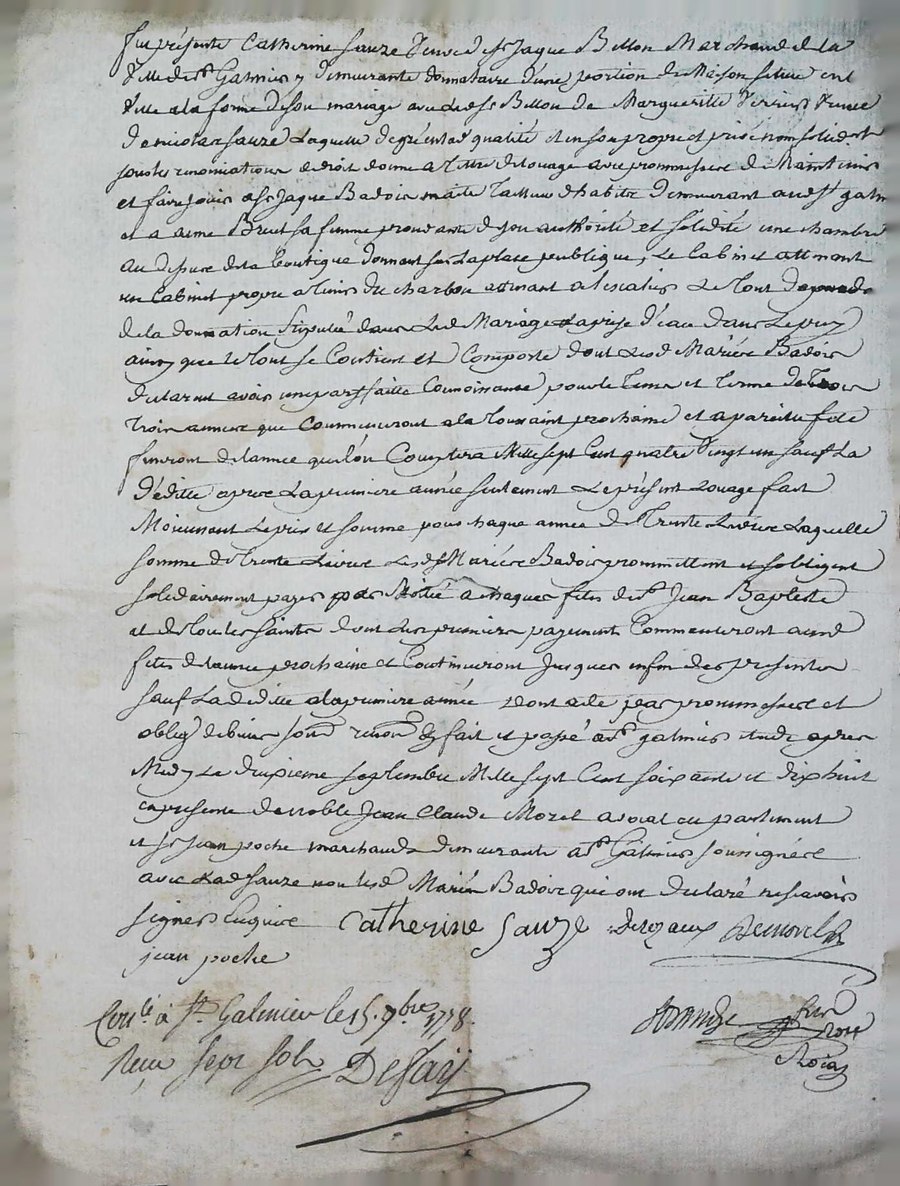 fut présente Catherine Sauze veuve de sr Jaque Billon Marchand de la
ville de st Galmier y demeurante donnataire d'une portion de Maison située en lad
ville a la forme de son mariage avec led sr Billon de Margueritte verrier veuve
de nicolas sauze Laquelle de gré esd qualité et en son propre et privé nom solidt
sous les renonciations de droit donne a titre de louage avec prommesse de Maintenir
et faire jouir a sr Jaque Badoir maitre Tailleur d'habits demeurant aud st galm
et a aime Bruel sa femme procedante de son authorité et solidité une chambre
au dessus de la Boutique donnant sur La place publique, Le Cabinet attenant
un Cabinet propre a tenir du charbon attenant a l'escalier Le tout
de la donnation stipulée dans Led Mariage La prise d'eau dans Le puy
ainsy que le tout se Contient et Comporte dont Lesd Mariés Badoir
déclarent avoir une parfaitte Connoissance pour le tems et terme de Trois
Trois années que Commenceront a la Toussaint prochaine et a pareille fete
finiront de l'année que l'on Comptera Mille sept Cent quatre Vingt un sauf La
déditte apres La premiere année seulement Le présent Louage fait
Moienant Le prix et somme pour chaque année de Trente Livres Laquelle
somme de Trente Livres Lesds Mariés Badoir promettent et s'obligent
solidairement payer par Moitié a chaques fêtes de st Jean Baptiste
et de Tous les saints dont Les premiers payements Commenceront auxd
fêtes de l'année prochaine et Continueront jusques enfin des presentes
sauf La déditte a la premiere année dont acte par prommesses et
oblig de biens soud renon fait et passé a st galmier etude apres
Midy Le deuxieme septembre Mille sept Cent soixante et dix huit
en presence de noble Jean Claude Morel avocat en parlement
et sr Jean poche marchand demeurants a st Galmier soussignés
avec Lad Sauze non lesd Mariés Badoir qui ont déclaré ne scavoir
signer Enquis Catherine Sauze Desojaux Demorel
jean poche
Conlé à St. Galmier le 15. 7bre 1778.
Reçu sept sols DeSaij